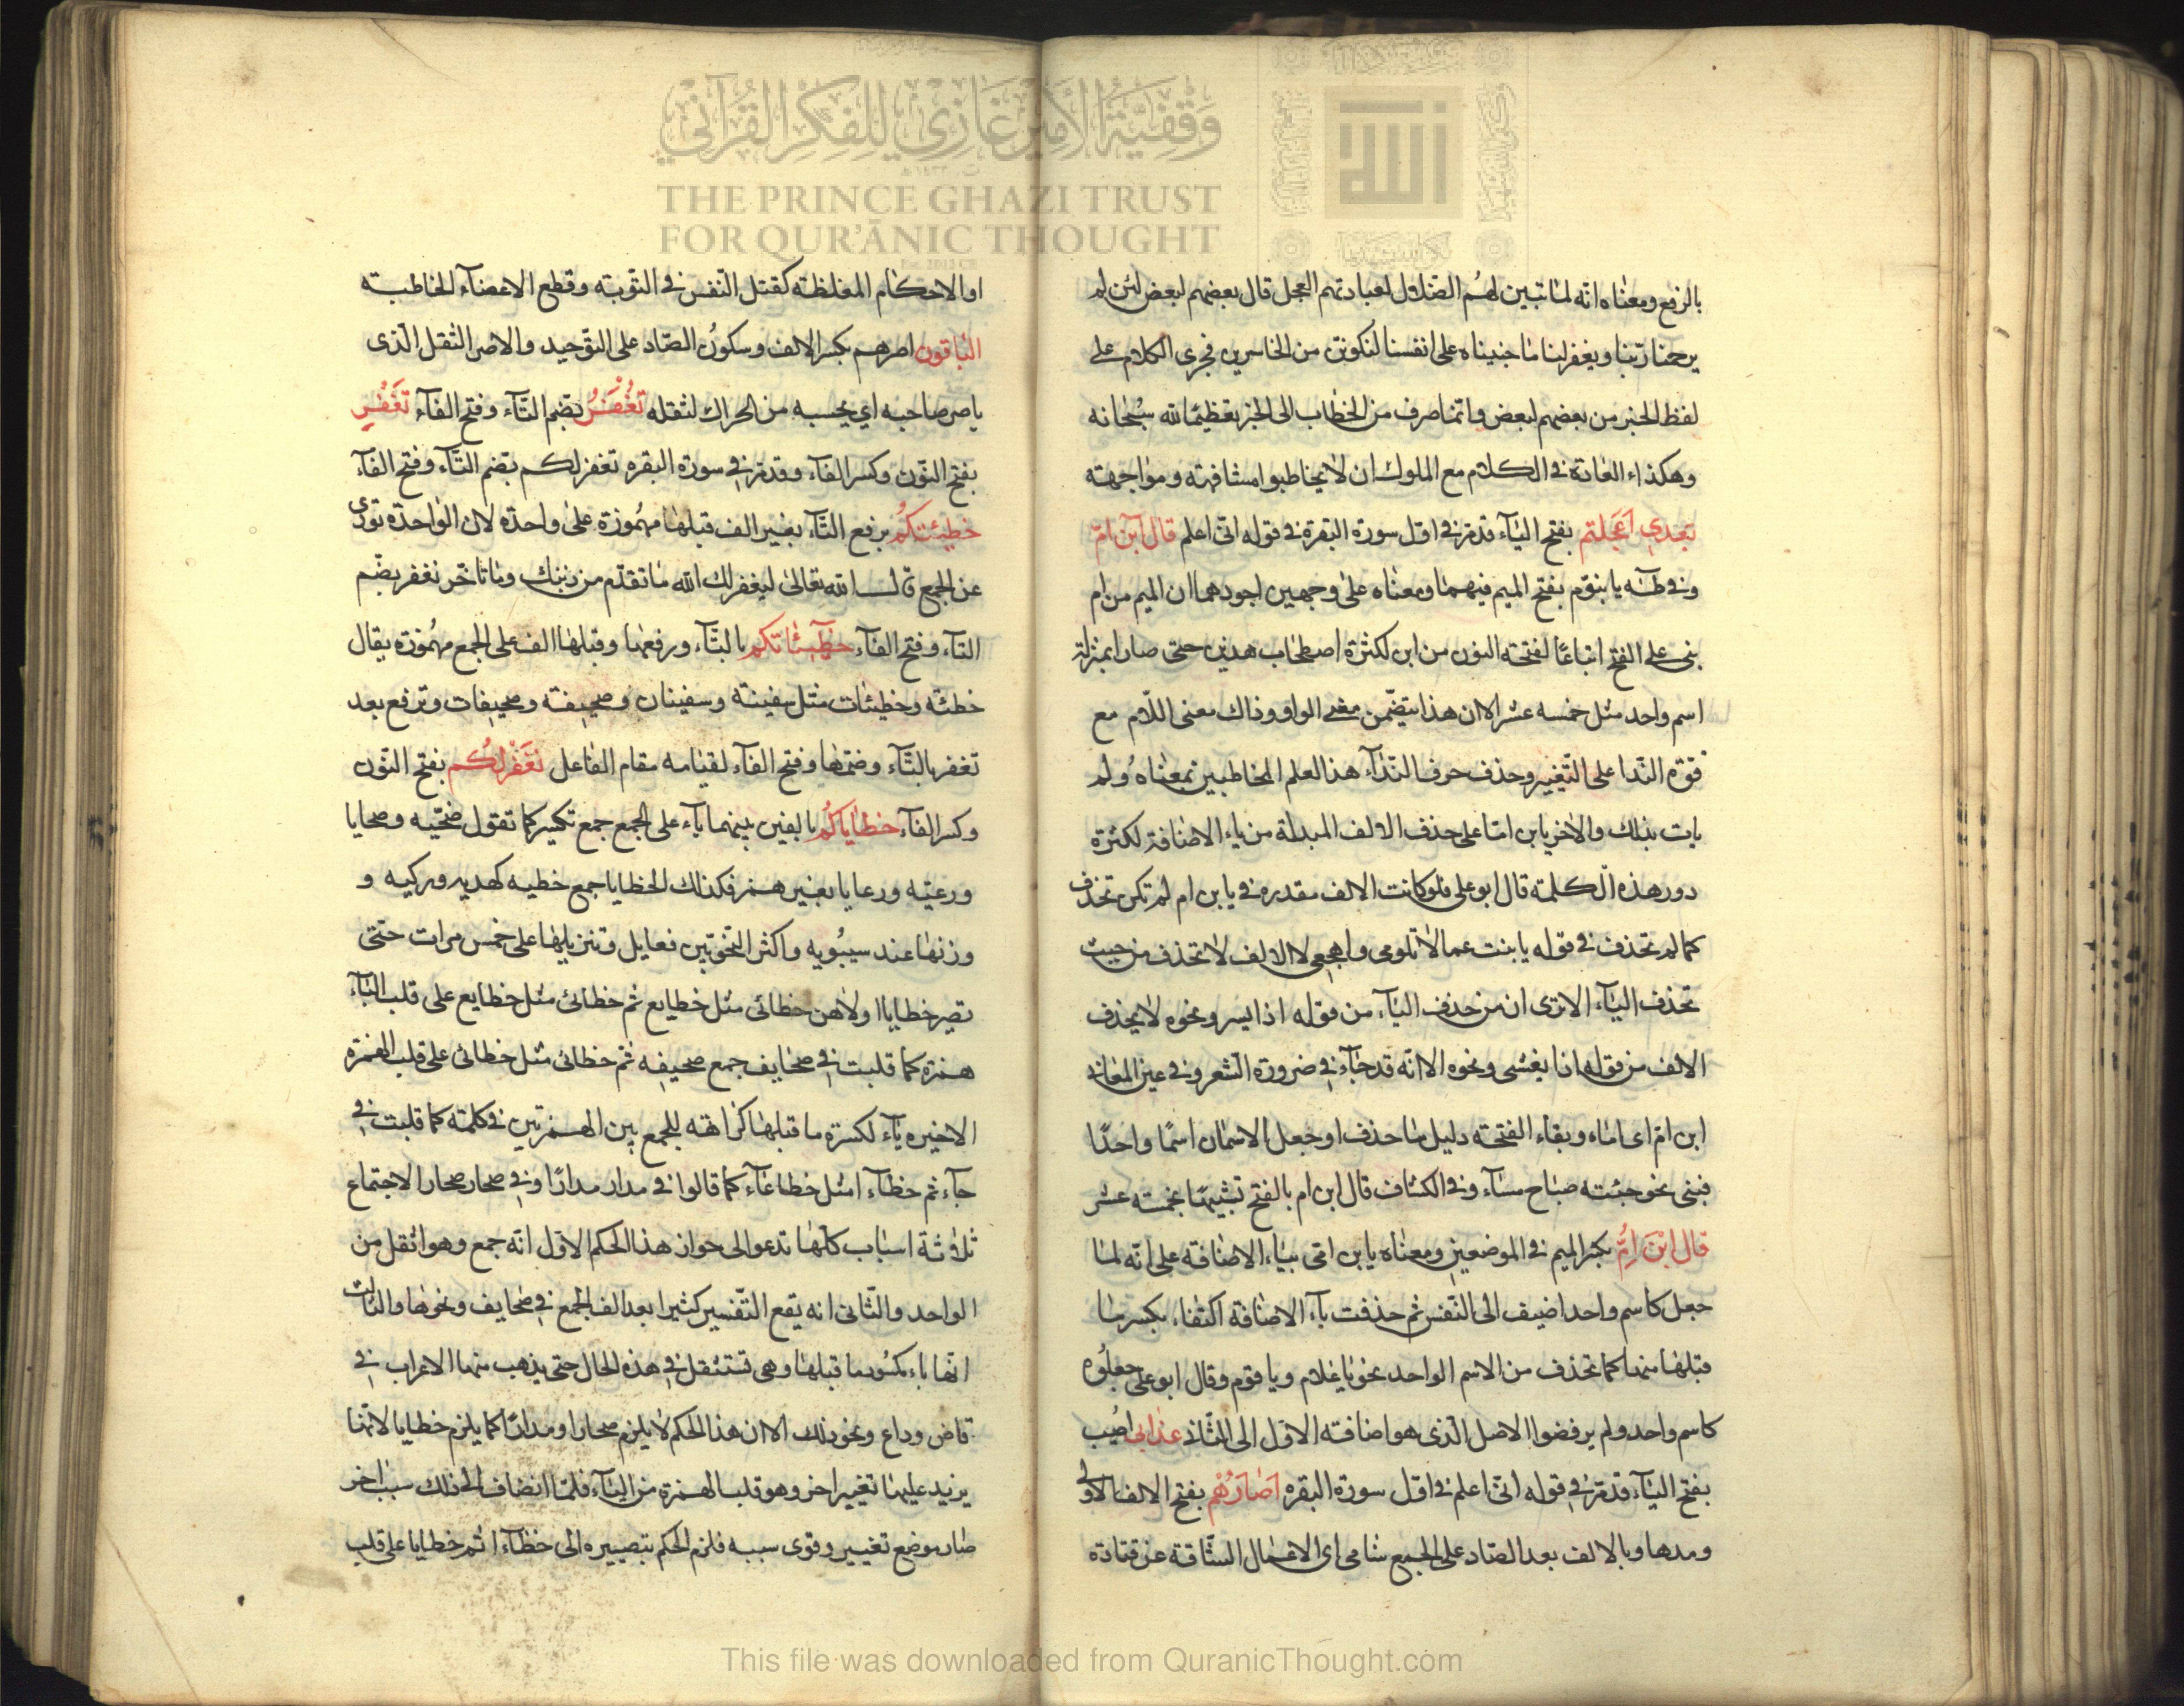 وقفية الأمير غازي للفكر القرآني
THE PRINCE GHAZI TRUST
FOR QUR'ĀNIC THOUGHT
الله
بالرفع ومعناه انه لما تبين لهم الضلال لعبادتهم العجل قال بعضهم لبعض لئن لم
يرحمنا ربنا ويغفر لنا ما جنيناه على انفسنا لنكونن من الخاسرين فجرى الكلام على
لفظ الخبر من بعضهم لبعض وانما صرف من الخطاب الى الخبر تعظيما لله سبحانه
وهكذاء العادة في الكلام مع الملوك ان لا يخاطبوا مشافهته ومواجهته
بعدي اعجلتم بفتح الياء قد مر في اول سورة البقرة في قوله اني اعلم قال ابن ام
وفي طه يا بنؤم بفتح الميم فيهما ومعناه على وجهين اجودهما ان الميم من ام
بنى على الفتح اتباعا لفتحة النون من ابن لكثرة اصطحاب هذين حتى صارا بمنزلة
اسم واحد مثل خمسه عشر الا ان هذا يتضمن معنى الواو وذاك معنى اللام مع
قوة الندا على التغيير وحذف حرف النداء هذا لعلم المخاطبين بمعناه ولم
يات بذلك والاخر يا بن اما على حذف الالف المبدلة من ياء الاضافة لكثرة
دور هذه الكلمة قال ابو على فلو كانت الالف مقدره في يا بن ام لم تكن تحذف
كما لم تحذف في قوله يا بنت عما لا تلومى واهجعى لا الالف لا تحذف من حيث
تحذف الياء الا ترى ان من حذف الياء من قوله اذا يسر ونحوه لا يحذف
الالف من قوله اذا يغشى ونحوه الا انه قد جاء في ضرورة الشعر وفي عين المعاني
ابن ام اى اماه وبقاء الفتحة دليل ما حذف او جعل الاسمان اسما واحدا
فبنى نحو جئته صباح مساء وفي الكشاف قال ابن ام بالفتح تشبيها بخمسه عشر
قال ابن ام بكسر الميم في الموضعين ومعناه يا بن امى بياء الاضافة على انه لما
جعل كاسم واحد اضيف الى النفس ثم حذفت ياء الاضافة اكتفاء بكسر ما
قبلها منها كما تحذف من الاسم الواحد نحو يا غلام ويا قوم وقال ابو على جعلوه
كاسم واحد ولم يرفضوا الاصل الذى هو اضافته الاول الى الثاني عذابى اصيب
بفتح الياء قد مر في قوله انى اعلم في اول سورة البقره اصارهم بفتح الالف الاولى
ومدها وبالالف بعد الصاد على الجمع شامى اى الاعمال الشاقة عن قتادة
او الاحكام المغلظته كقتل النفس في التوبته وقطع الاعضاء الخاطيه
الباقون اصرهم بكسر الالف وسكون الصاد على التوحيد والاصر الثقل الذى
ياصر صاحبه اي يحبسه من الحراك لثقله تغفر بضم التاء وفتح الفاء نغفر
بفتح النون وكسر الفاء وقد مر في سورة البقره تغفر لكم بضم التاء وفتح الفاء
خطيئتكم برفع التاء بغير الف قبلها مهموزة على واحدة لان الواحدة تودى
عن الجمع قال الله تعالى ليغفر لك الله ما تقدم من ذنبك وما تاخر تغفر بضم
التاء وفتح الفاء خطيئاتكم بالتاء ورفعها وقبلها الف على الجمع مهموزة يقال
خطئة وخطيئات مثل سفينة وسفينات وصحيفة وصحيفات وترفع بعد
تغفر بالتاء وضمها وفتح الفاء لقيامه مقام الفاعل نغفر لكم بفتح النون
وكسر الفاء خطاياكم بالفين بينهما ياء على الجمع جمع تكسير كما تقول ضحيه وضحايا
ورعيه ورعايا بغير همز فكذلك الخطايا جمع خطيه كهديه وركيه و
وزنها عند سيبويه واكثر النحويين فعايل وتنزيلها على خمس مرات حتى
تصير خطايا اولاهن خطائى مثل خطايع ثم خطائئ مثل خطايع على قلب الياء
همزة كما قلبت في صحايف جمع صحيفه ثم خطائى مثل خطائى على قلب الهمزة
الاخيره ياء لكسرة ما قبلها كراهته للجمع بين الهمزتين في كلمته كما قلبت في
جاء ثم خطاء ا مثل خطاعاء كما قالوا في مدار مدارا وفي صحار صحارا لاجتماع
ثلاثة اسباب كلها تدعو الى جواز هذا الحكم الاول انه جمع وهو اثقل من
الواحد والثانى انه يقع التفسير كثيرا بعد الف الجمع في صحايف ونحوها والثالث
انها ياء مكسور ما قبلها وهى تستثقل في هذه الحال حتى يذهب منها الاعراب في
قاض وداع ونحو ذلك الا ان هذا الحكم لا يلزم صحارا ومدارا كما يلزم خطايا لانها
يزيد عليها تغيير اخر وهو قلب الهمزة من الياء فلما انضاف الى ذلك سبب اخر
صار موضع تغيير وقوى سببه فلزم الحكم بتصييره الى خطاء ا ثم خطايا على قلب
This file was downloaded from QuranicThought.com